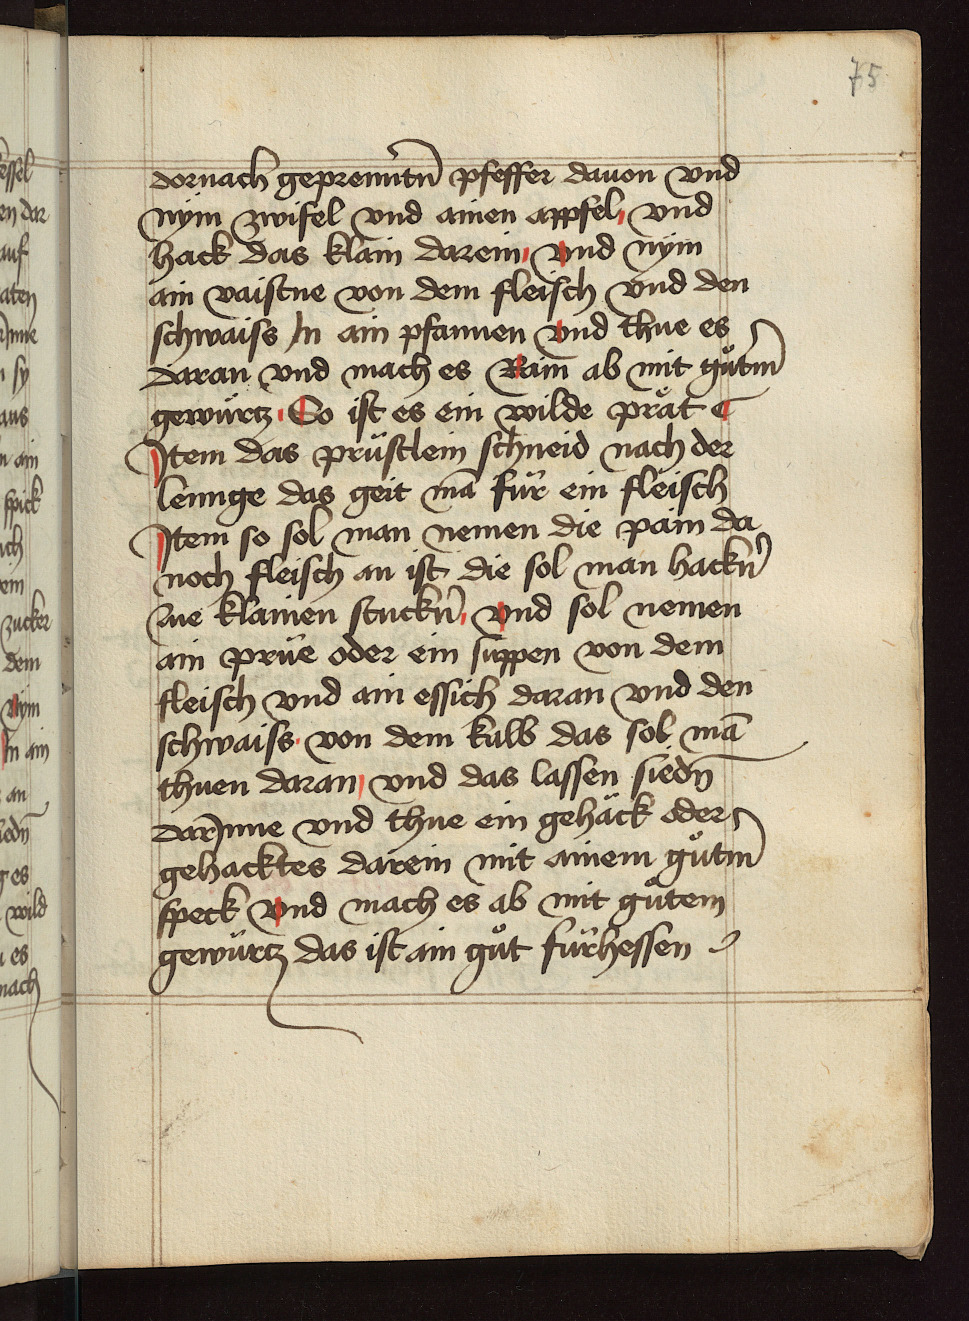 75
dornach geprenntn̄ pfeffer dauon vnd
nÿm zwifel vnd ainen appfel, vnd
hack das klain darein, vnd nÿm
ain vaistne von dem fleisch vnd den
schwaiss In ain pfannen vnd thue es
daran vnd mach es Rain ab mit gůtm̄
gewürtz. So ist es ein wilde prät
Item das prüstlein schneid nach der
lennge das geit mā für ein fleisch
Item so sol man nemen die pain da
noch fleisch an ist die sol man hackn̄
zue klainen stuckn̄, vnd sol nemen
ain prüe oder ein suppen von dem
fleisch vnd ain essich daran vnd den
schwaiss. von dem kalb das sol mā
thuen daran, vnd das lassen siedn̄
darInne vnd thue ein gehäck oder
gehacktes darein mit ainem gůtm̄
speck vnd mach es ab mit gůtem
gewürtz das ist ain gůt fürhessen